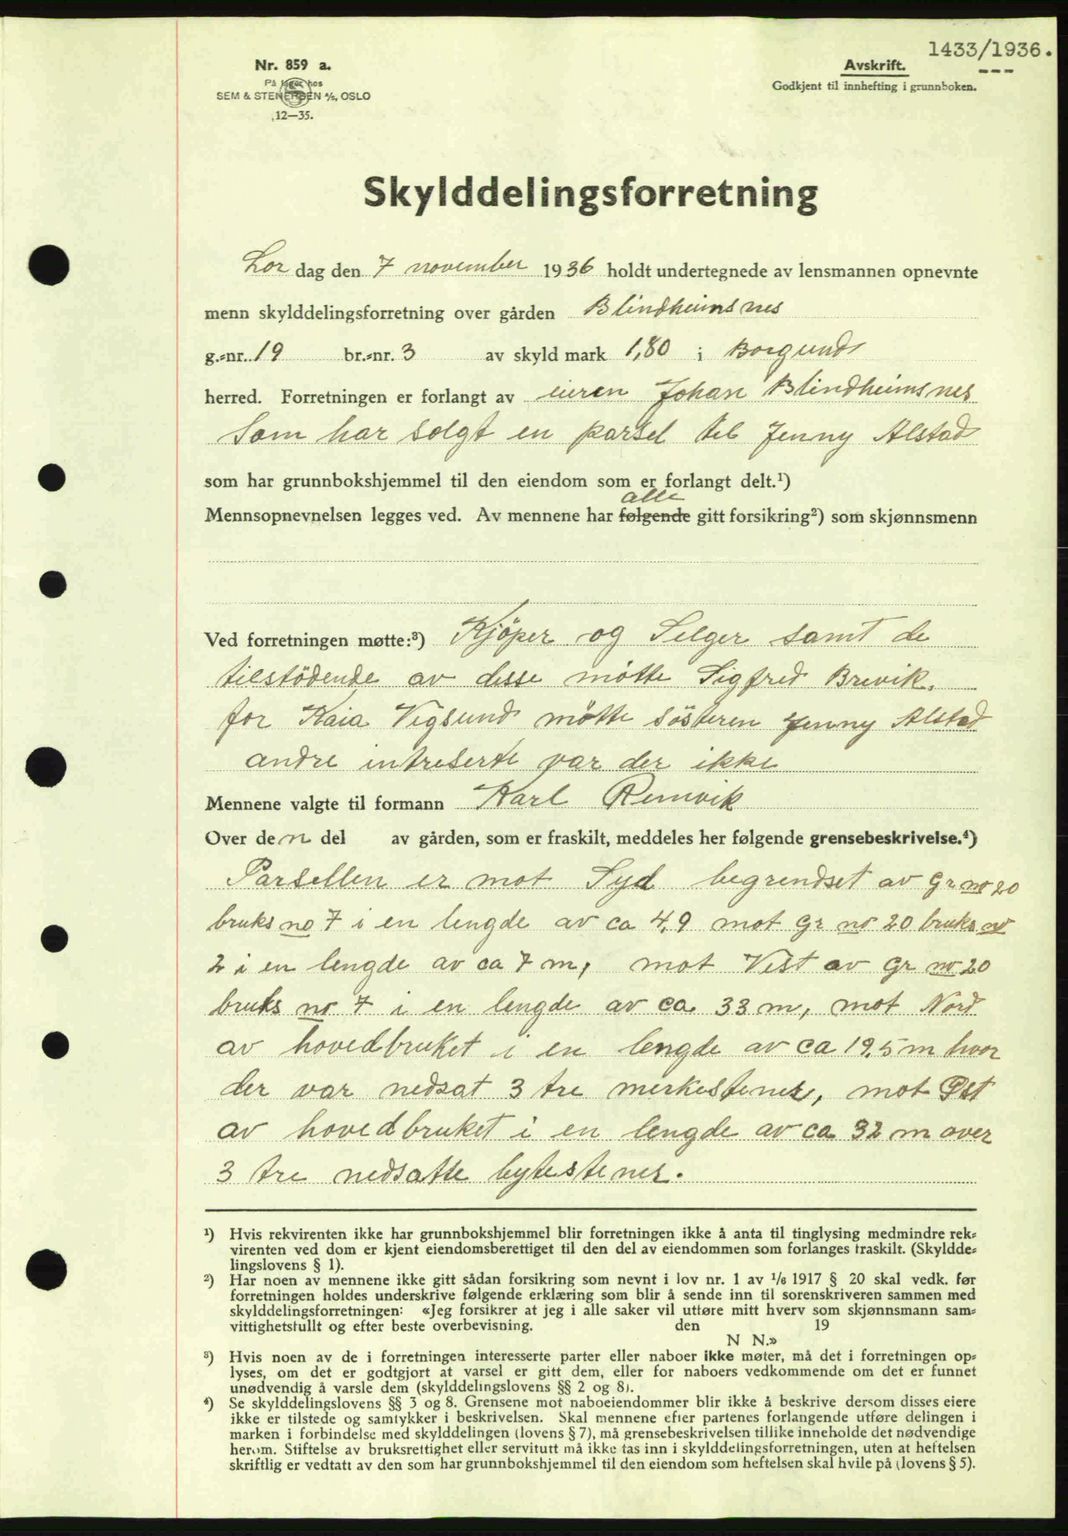 1433/1936.
Nr. 859 a.
På lager hos
SEM & STENERSEN A/S, OSLO
12—35.
Avskrift.
Godkjent til innhefting i grunnboken.
Skylddelingsforretning
Lor dag den 7 november 1936 holdt undertegnede av lensmannen opnevnte
menn skylddelingsforretning over gården Blindheimsnes
g.-nr. 19 br.-nr. 3 av skyld mark 1,80 i Borgund
herred. Forretningen er forlangt av eieren Johan Blindheimsnes
Som har solgt en parsel til Jenny Alstad
som har grunnbokshjemmel til den eiendom som er forlangt delt.¹)
alle
Mennsopnevnelsen legges ved. Av mennene har følgende gitt forsikring²) som skjønnsmenn
Ved forretningen møtte:³) Kjöper og Selger samt de
tilstödende av disse mötte Sigfred Brevik,
for Kaia Vegsund mötte sösteren Jenny Alstad
andre intreserte var der ikke
Mennene valgte til formann Karl Remvik
Over den del av gården, som er fraskilt, meddeles her følgende grensebeskrivelse.⁴)
Parsellen er mot Syd begrendset av Gr no 20
bruks no 7 i en lengde av ca 4,9 mot Gr no 20 bruks no
2 i en lengde av ca 7 m, mot Vest av Gr no 20
bruks no 7 i en lengde av ca 33 m, mot Nord
av hovedbruket i en lengde av ca 19,5 m hvor
der var nedsat 3 tre merkestener, mot Øst
av hovedbruket i en lengde av ca 32 m over
3 tre nedsatte bytestener.
¹) Hvis rekvirenten ikke har grunnbokshjemmel blir forretningen ikke å anta til tinglysing medmindre rek-
virenten ved dom er kjent eiendomsberettiget til den del av eiendommen som forlanges fraskilt. (Skyldde-
lingslovens § 1).
²) Har noen av mennene ikke gitt sådan forsikring som nevnt i lov nr. 1 av 1/6 1917 § 20 skal vedk. før
forretningen holdes underskrive følgende erklæring som blir å sende inn til sorenskriveren sammen med
skylddelingsforretningen: «Jeg forsikrer at jeg i alle saker vil utføre mitt hverv som skjønnsmann sam-
vittighetsfullt og efter beste overbevisning. den 19
N N.»
³) Hvis noen av de i forretningen interesserte parter eller naboer ikke møter, må det i forretningen op-
lyses, om det er godtgjort at varsel er gitt dem, eller for naboers vedkommende om det er funnet
unødvendig å varsle dem (skylddelingslovens §§ 2 og 8).
⁴) Se skylddelingslovens §§ 3 og 8. Grensene mot naboeiendommer blir ikke å beskrive dersom disses eiere
ikke er tilstede og samtykker i beskrivelsen. Skal mennene efter partenes forlangende utføre delingen i
marken i forbindelse med skylddelingen (lovens § 7), må grensebeskrivelsen tillike inneholde det nødvendige
herom. Stiftelse av bruksrettighet eller servitutt må ikke tas inn i skylddelingsforretningen, uten at heftelsen
skriftlig er vedtatt av den som har grunnbokshjemmel til den eiendom som heftelsen skal hvile på (lovens § 5).